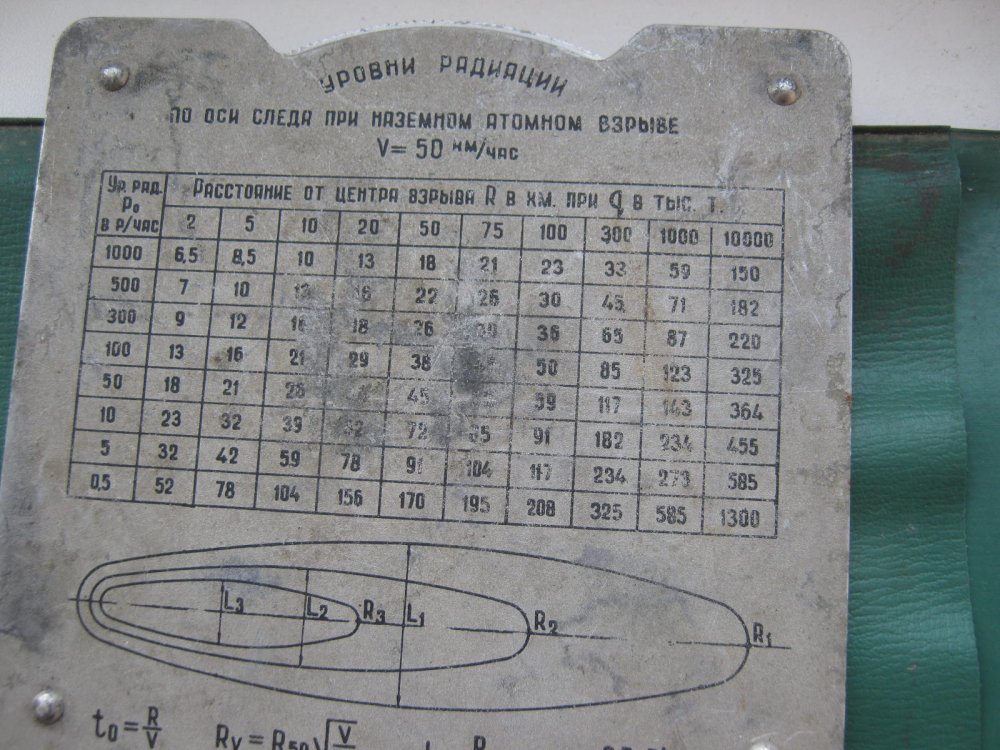 УРОВНИ РАДИАЦИИ
ПО ОСИ СЛЕДА ПРИ НАЗЕМНОМ АТОМНОМ ВЗРЫВЕ
V= 50 КМ/ЧАС
УР. РАД. P₀ В Р/ЧАС РАССТОЯНИЕ ОТ ЦЕНТРА ВЗРЫВА R В КМ. ПРИ q В ТЫС. Т.
2 5 10 20 50 75 100 300 1000 10000
1000 6,5 8,5 10 13 18 21 23 33 59 150
500 7 10 16 22 26 30 45 71 182
300 9 12 18 26 36 65 87 220
100 13 16 21 29 38 50 85 123 325
50 18 21 28 45 59 117 143 364
10 23 32 39 52 72 91 182 234 455
5 32 42 59 78 91 104 117 234 273 585
0,5 52 78 104 156 170 195 208 325 585 1300
L₃ L₂ R₃ L₁ R₂ R₁
t₀ = R/V Rv = R₅₀√V